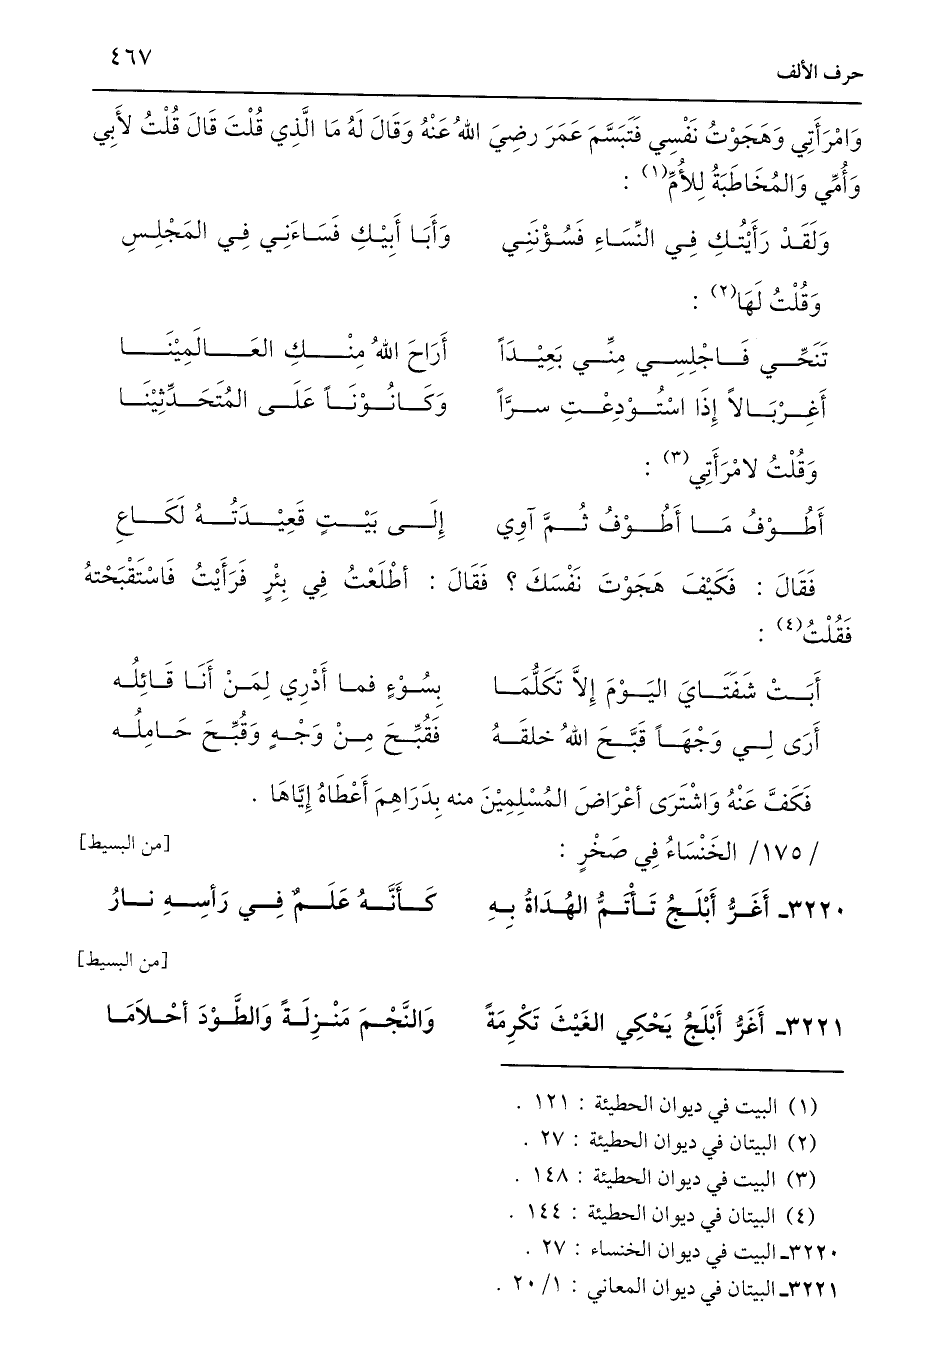 حرف الألف ٤٦٧
وَامْرَأَتِي وَهَجَوْتُ نَفْسِي فَتَبَسَّمَ عَمَرَ رضِيَ اللهُ عَنْهُ وَقَالَ لَهُ مَا الَّذِي قُلْتَ قَالَ قُلْتُ لأَبِي
وَأُمِّي وَالمُخَاطَبَةُ لِلأُمِّ(١) :
وَلَقَدْ رَأَيْتُكِ فِي النِّسَاءِ فَسُؤْنَنِي وَأَبَا أَبِيْكِ فَسَاءَنِي فِي المَجْلِسِ
وَقُلْتُ لَهَا(٢) :
تَنَحِّي فَاجْلِسِي مِنِّي بَعِيْدَاً أَرَاحَ اللهُ مِنْكِ العَالَمِيْنَا
أَغِرْبَالاً إِذَا اسْتُوْدِعْتِ سرَّاً وَكَانُوْنَاً عَلَى المُتَحَدِّثِيْنَا
وَقُلْتُ لامْرَأَتِي(٣) :
أَطُوْفُ مَا أَطُوْفُ ثُمَّ آوِي إِلَى بَيْتٍ قَعِيْدَتُهُ لَكَاعِ
فَقَالَ : فَكَيْفَ هَجَوْتَ نَفْسَكَ ؟ فَقَالَ : أطْلَعْتُ فِي بِئْرٍ فَرَأَيْتُ فَاسْتَقْبَحْتهُ
فَقُلْتُ(٤) :
أَبَتْ شَفَتَايَ اليَوْمَ إِلاَّ تَكَلُّمَا بِسُوْءٍ فما أَدْرِي لِمَنْ أَنَا قَائِلُه
أَرَى لِي وَجْهَاً قَبَّحَ اللهُ خلقَهُ فَقُبِّحَ مِنْ وَجْهٍ وَقُبِّحَ حَامِلُه
فَكَفَّ عَنْهُ وَاشْتَرَى أعْرَاضَ المُسْلِمِيْنَ منه بِدَرَاهِمَ أَعْطَاهُ إِيَّاهَا .
/ ١٧٥/ الخَنْسَاءُ فِي صَخْرٍ : [من البسيط]
٣٢٢٠ـ أَغَرُّ أَبْلَجُ تَأْتَمُّ الهُدَاةُ بِهِ كَأَنَّهُ عَلَمٌ فِي رَأسِهِ نارُ
[من البسيط]
٣٢٢١ـ أَغَرُّ أَبْلَجُ يَحْكِي الغَيْثَ تَكْرِمَةً وَالنَّجْمَ مَنْزِلَةً وَالطَّوْدَ أحْلاَمَا
(١) البيت في ديوان الحطيئة : ١٢١ .
(٢) البيتان في ديوان الحطيئة : ٢٧ .
(٣) البيت في ديوان الحطيئة : ١٤٨ .
(٤) البيتان في ديوان الحطيئة : ١٤٤ .
٣٢٢٠ـ البيت في ديوان الخنساء : ٢٧ .
٣٢٢١ـ البيتان في ديوان المعاني : ١/ ٢٠ .